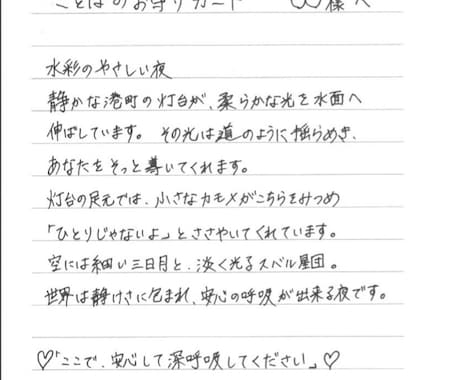 ことばのお守りカード　　〇〇様へ
水彩のやさしい夜
静かな港町の灯台が、柔らかな光を水面へ
伸ばしています。その光は道のように揺らめき、
あなたをそっと導いてくれます。
灯台の足元では、小さなカモメがこちらをみつめ
「ひとりじゃないよ」とささやいてくれています。
空には細い三日月と、淡く光るスバル星団。
世界は静けさに包まれ、安心の呼吸が出来る夜です。
♡「ここで、安心して深呼吸してください」♡